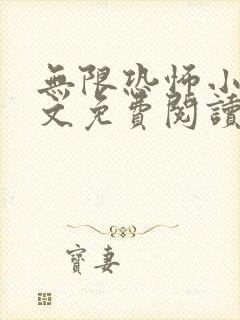 無限恐怖小
文免費閱讀
寶妻